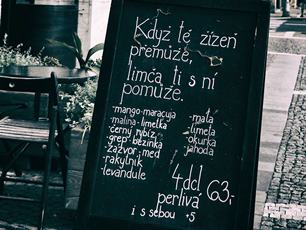 Když tě žízeň
přemůže,
limča ti s ní
pomůže.
-mango-maracuja
-malina-limetka
-černý rybíz
-grep-bezinka
-zázvor, med
-rakytník
-levandule
-máta
-limeta
-okurka
-jahoda
4dcl 63,-
perlivá
i s sebou +5